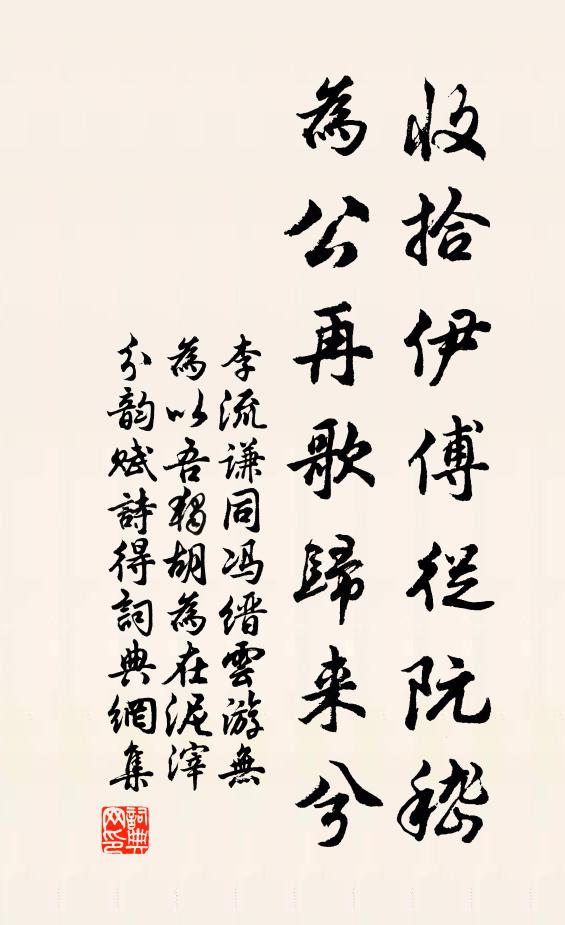 收拾伊傅從阮嵇
為公再歌歸来兮
李流謙同冯缙雲游無
為以吾獨胡為在泥滓
分韵赋詩得詞典網集
詞典网印